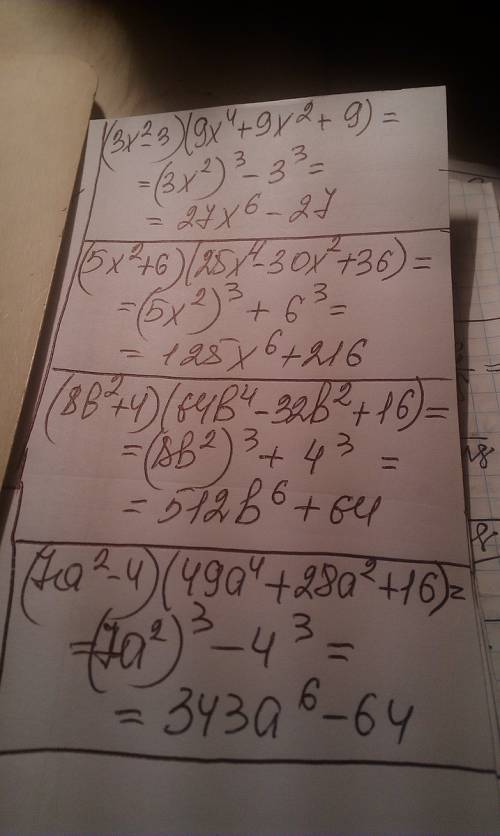 (3x²-3)(9x⁴+9x²+9)=
=(3x²)³-3³=
=27x⁶-27
(5x²+6)(25x⁴-30x²+36)=
=(5x²)³+6³=
=125x⁶+216
(8b²+4)(64b⁴-32b²+16)=
=(8b²)³+4³=
=512b⁶+64
(7a²-4)(49a⁴+28a²+16)=
=(7a²)³-4³=
=343a⁶-64